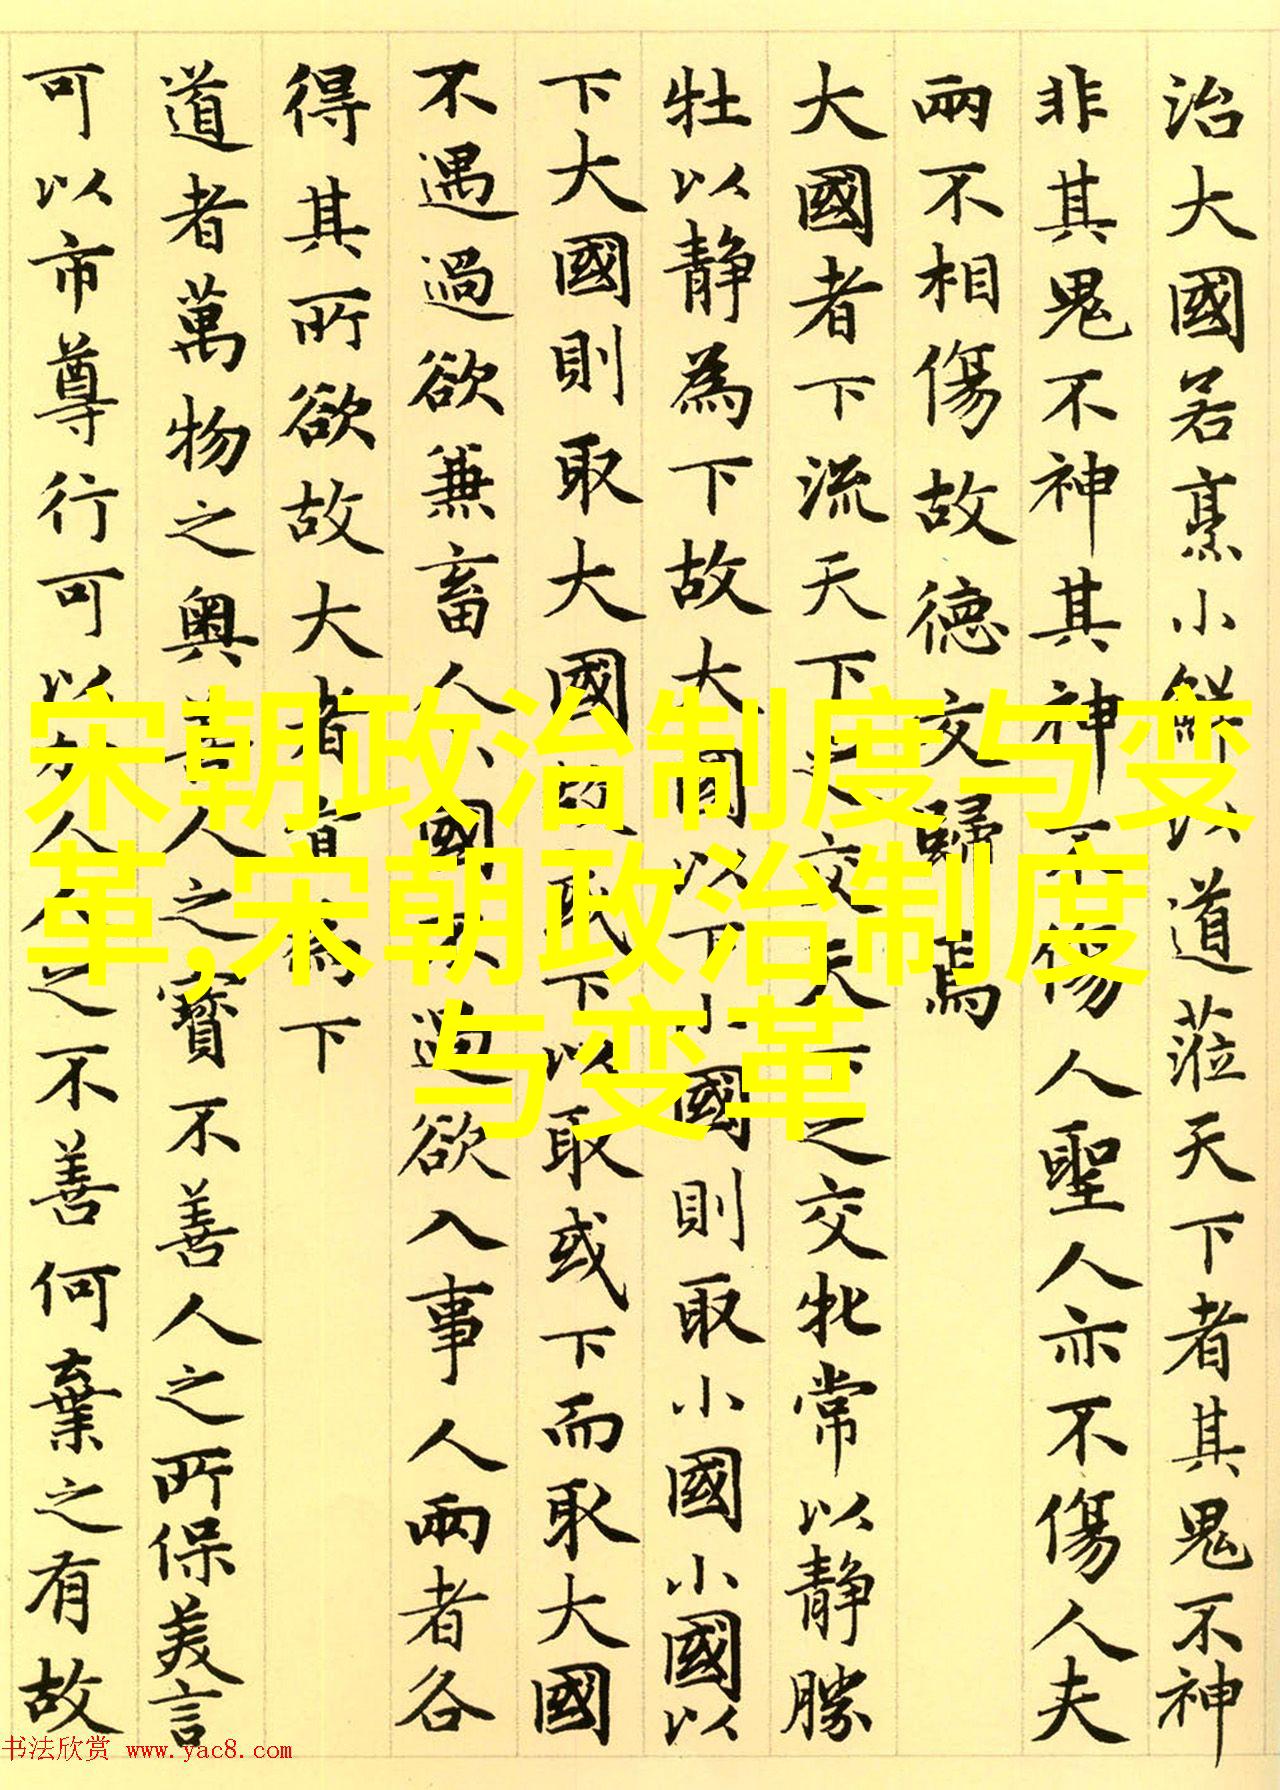 治大國若烹小鮮以道莅天下者其鬼不神
非其鬼不神其神不傷人聖人亦不傷人夫
兩不相傷故德交歸焉
大國者下流天下之交天下之交牝常以静勝
牡以静為下故大國以下小國則取小國小國以
下大國則取大國故或下以取或下而取大國
不遇過欲兼畜人小國不過欲入事人兩者各
得其所欲故大者宜為下
道者萬物之奧善人之寳不善人之所保美言
可以市尊行可以加人人之不善何棄之有故
宋朝政治制度与变
革,宋朝政治制度
与变革
书法欣赏 www.yac8.com